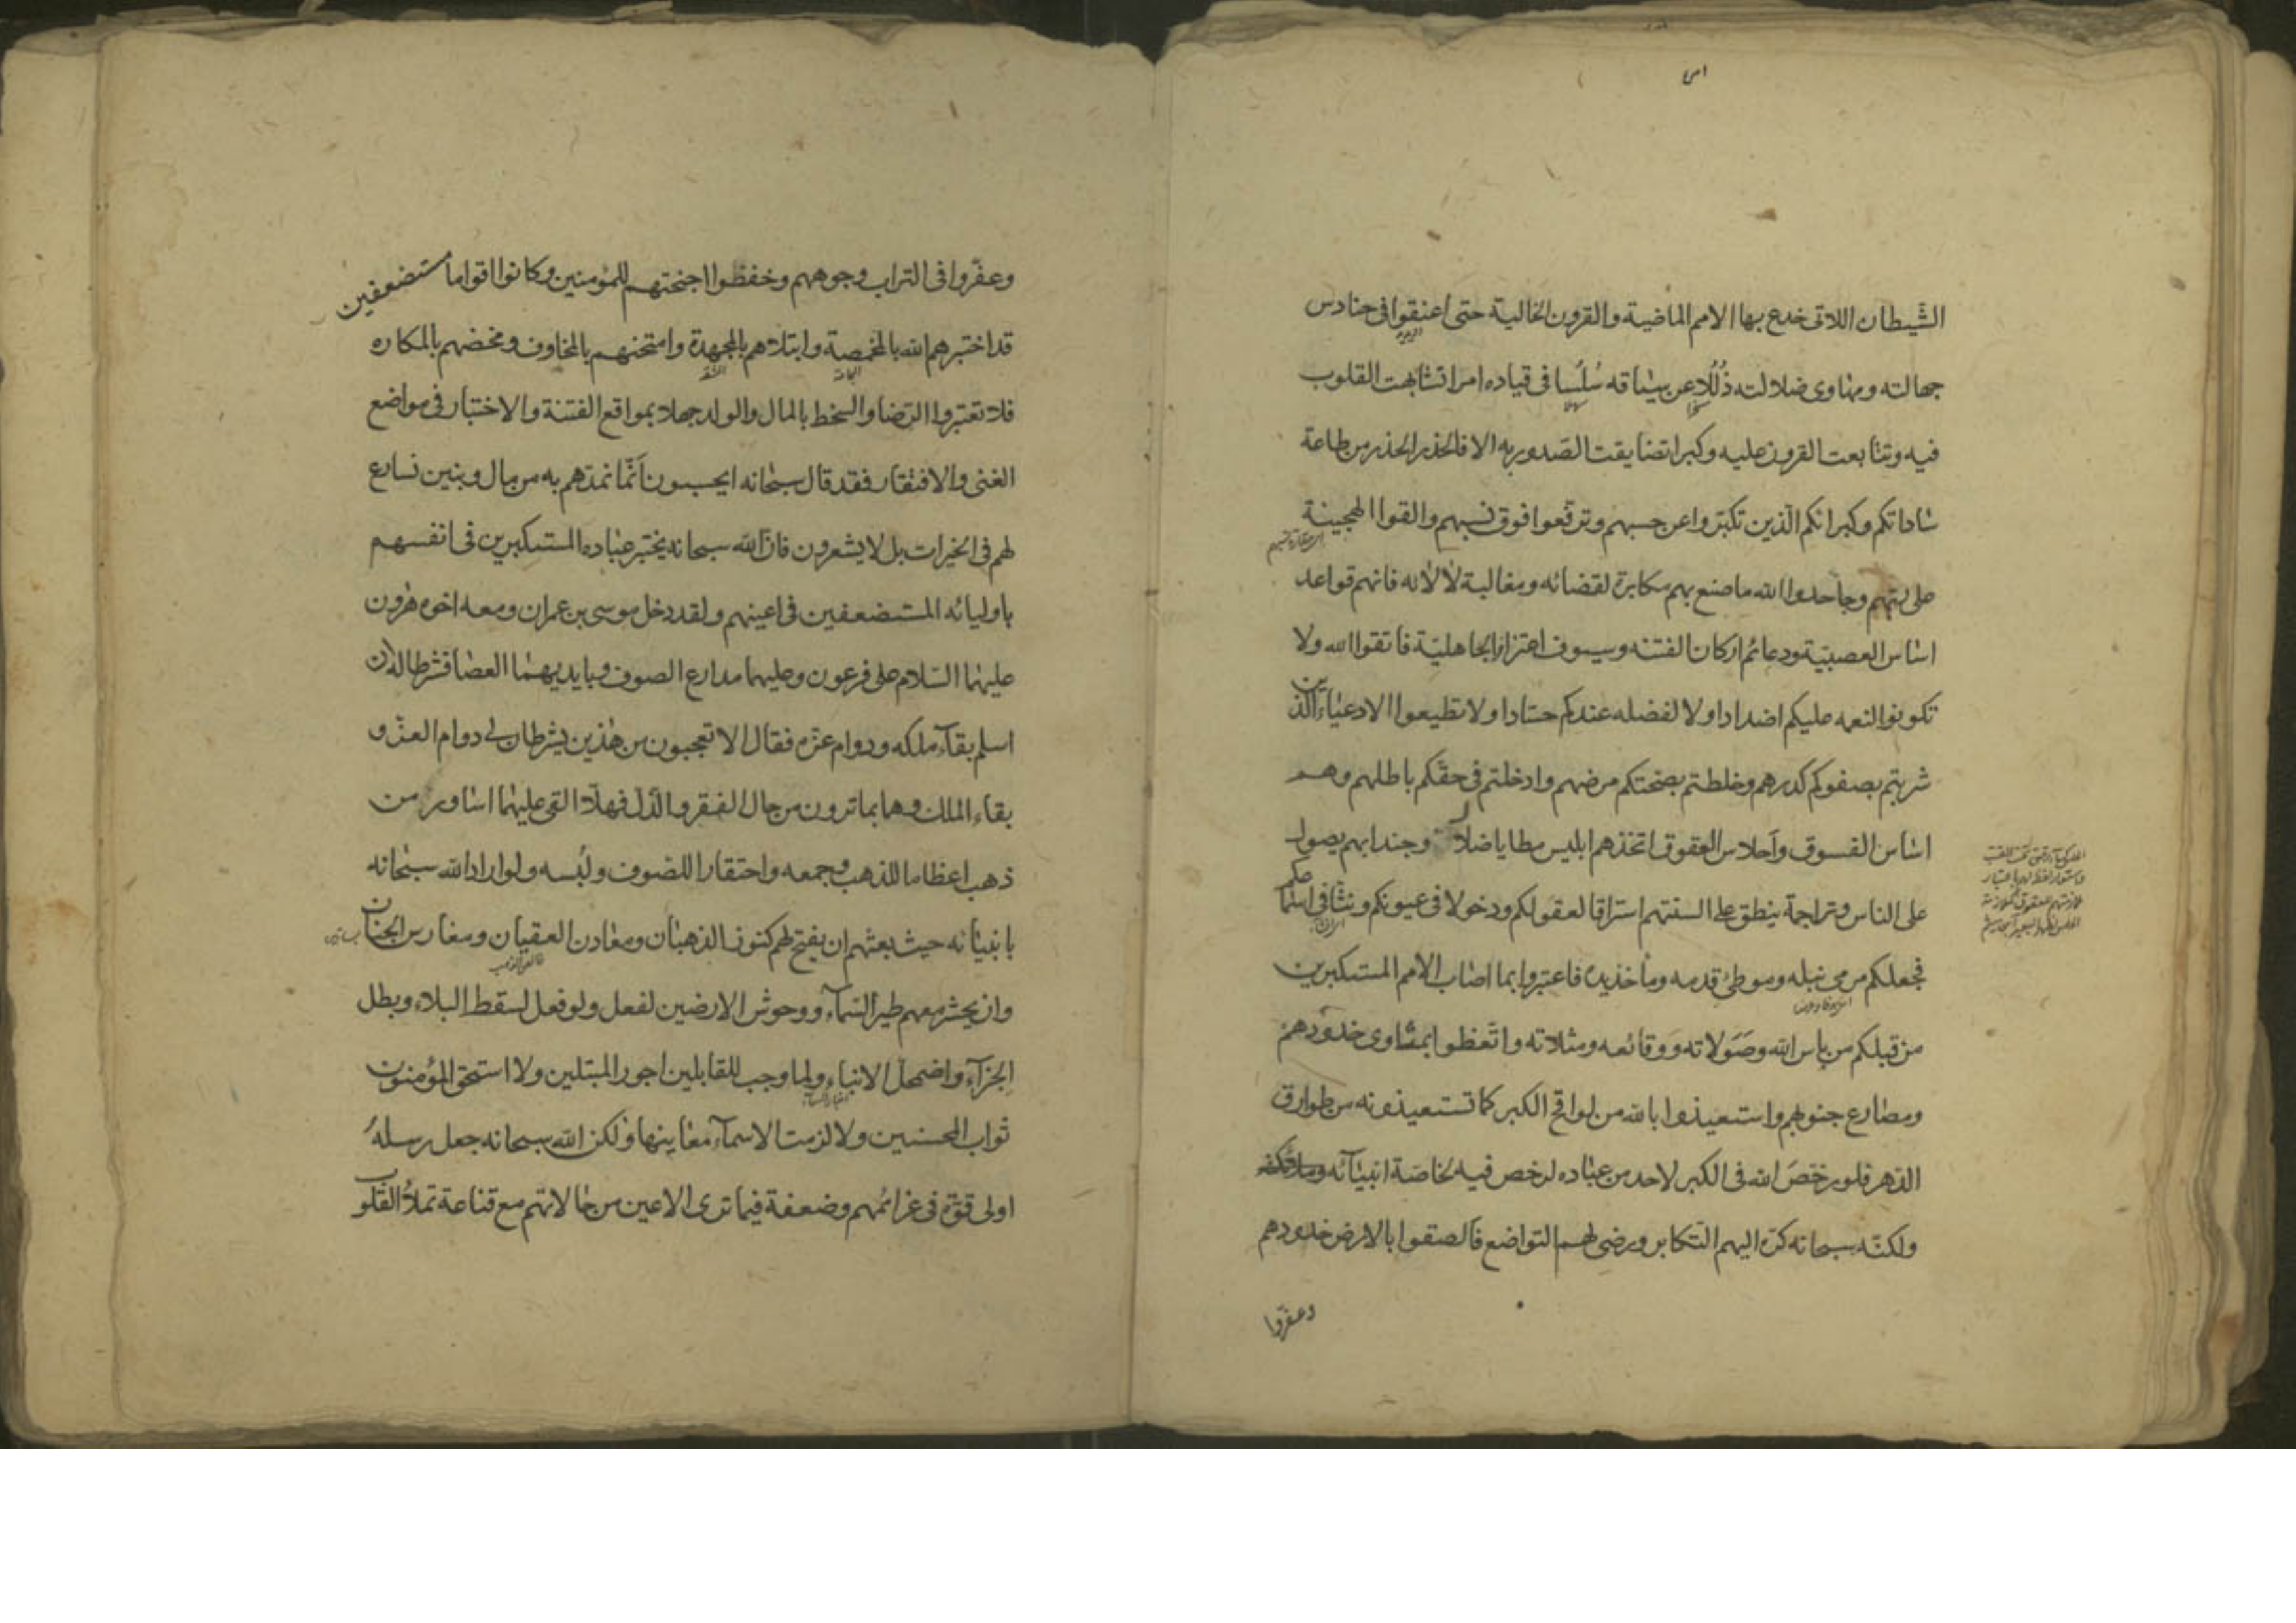 الشيطان اللاتى خدع بها الامم الماضية والقرون الخالية حتى اعنقوا فى حنادس
جهالته ومهاوى ضلالته ذُلُلا عن سياقه سُلُسا فى قياده امرا تشابهت القلوب
فيه وتتابعت القرون عليه وكبرا تضايقت الصدور به الا فالحذر الحذر من طاعة
ساداتكم وكبرائكم الذين تكبروا عن حسبهم وترفعوا فوق نسبهم والقوا الهجينة
على ربهم وجاحدوا الله ما صنع بهم مكابرة لقضائه ومغالبة لالائه فانهم قواعد
اساس العصبية ودعائم اركان الفتنه وسيوف اعتزاز الجاهلية فاتقوا الله ولا
تكونوا لنعمه عليكم اضدادا ولا لفضله عندكم حسادا ولا تطيعوا الادعياء الذين
شربتم بصفوكم كدرهم وخلطتم بصحتكم مرضهم وادخلتم فى حقكم باطلهم وهم
اساس الفسوق وأحلاس العقوق اتخذهم ابليس مطايا ضلال وجندا بهم يصول
على الناس وتراجمة ينطق على السنتهم استراقا لعقولكم ودخولا فى عيونكم ونثا فى اسماعكم
فجعلكم مرمى نبله وموطئ قدمه وماخذ يده فاعتبروا بما اصاب الامم المستكبرين
من قبلكم من باس الله وصَوَلاته ووقائعه ومثلاته واتعظوا بمثاوى خدودهم
ومصارع جنوبهم واستعيذوا بالله من لواقح الكبر كما تستعيذونه من طوارق
الدهر فلو رخصَ الله فى الكبر لاحد من عباده لرخص فيه لخاصة انبيآئه
ولكنه سبحانه كره اليهم التكابر ورضى لهم التواضع فالصقوا بالارض خدودهم
وعفروا
وعفّروا فى التراب وجوههم وخفضوا اجنحتهم للمؤمنين وكانوا اقواما مستضعفين
قد اختبرهم الله بالمخمصة وابتلاهم بالمجهدة وامتحنهم بالمخاوف ومخضهم بالمكاره
فلا تعتبروا الرضا والسخط بالمال والولد جهلا بمواقع الفتنة والاختبار فى مواضع
الغنى والافتقار فقد قال سبحانه ايحسبون أنّما نمدهم به من مال وبنين نسارع
لهم فى الخيرات بل لا يشعرون فان الله سبحانه يختبر عباده المستكبرين فى انفسهم
باوليائه المستضعفين فى اعينهم ولقد دخل موسى بن عمران ومعه اخوه هرون
عليهما السلام على فرعون وعليهما مدارع الصوف وبايديهما العصا فشرطا له ان
اسلم بقآء ملكه ودوام عزه فقال الا تعجبون من هذين يشرطان لى دوام العز و
بقاء الملك وهما بما ترون من حال الفقر والذل فهلا القى عليهما اساور من
ذهب اعظاما للذهب وجمعه واحتقارا للصوف ولُبسه ولو اراد الله سبحانه
بانبيائه حيث بعثهم ان يفتح لهم كنوز الذهبان ومعادن العقيان ومغارس الجنان
وان يحشر معهم طير السمآء ووحوش الارضين لفعل ولو فعل لسقط البلاء وبطل
الجزآء واضمحل الانباء ولما وجب للقابلين اجور المبتلين ولا استحق المؤمنون
ثواب المحسنين ولا لزمت الاسمآء معانيها ولكن الله سبحانه جعل رسله
اولى قوة فى عزائمهم وضعفة فيما ترى الاعين من حالاتهم مع قناعة تملأ القلوب